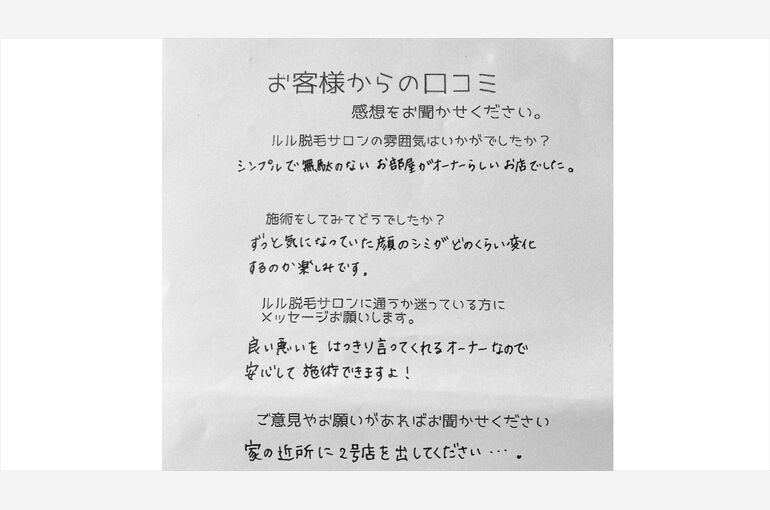 お客様からの口コミ
感想をお聞かせください。
ルル脱毛サロンの雰囲気はいかがでしたか？
シンプルで無駄のないお部屋がオーナーらしいお店でした。
施術をしてみてどうでしたか？
ずっと気になっていた顔のシミがどのくらい変化
するのか楽しみです。
ルル脱毛サロンに通うか迷っている方に
メッセージお願いします。
良い悪いをはっきり言ってくれるオーナーなので
安心して施術できますよ！
ご意見やお願いがあればお聞かせください
家の近所に2号店を出してください…。